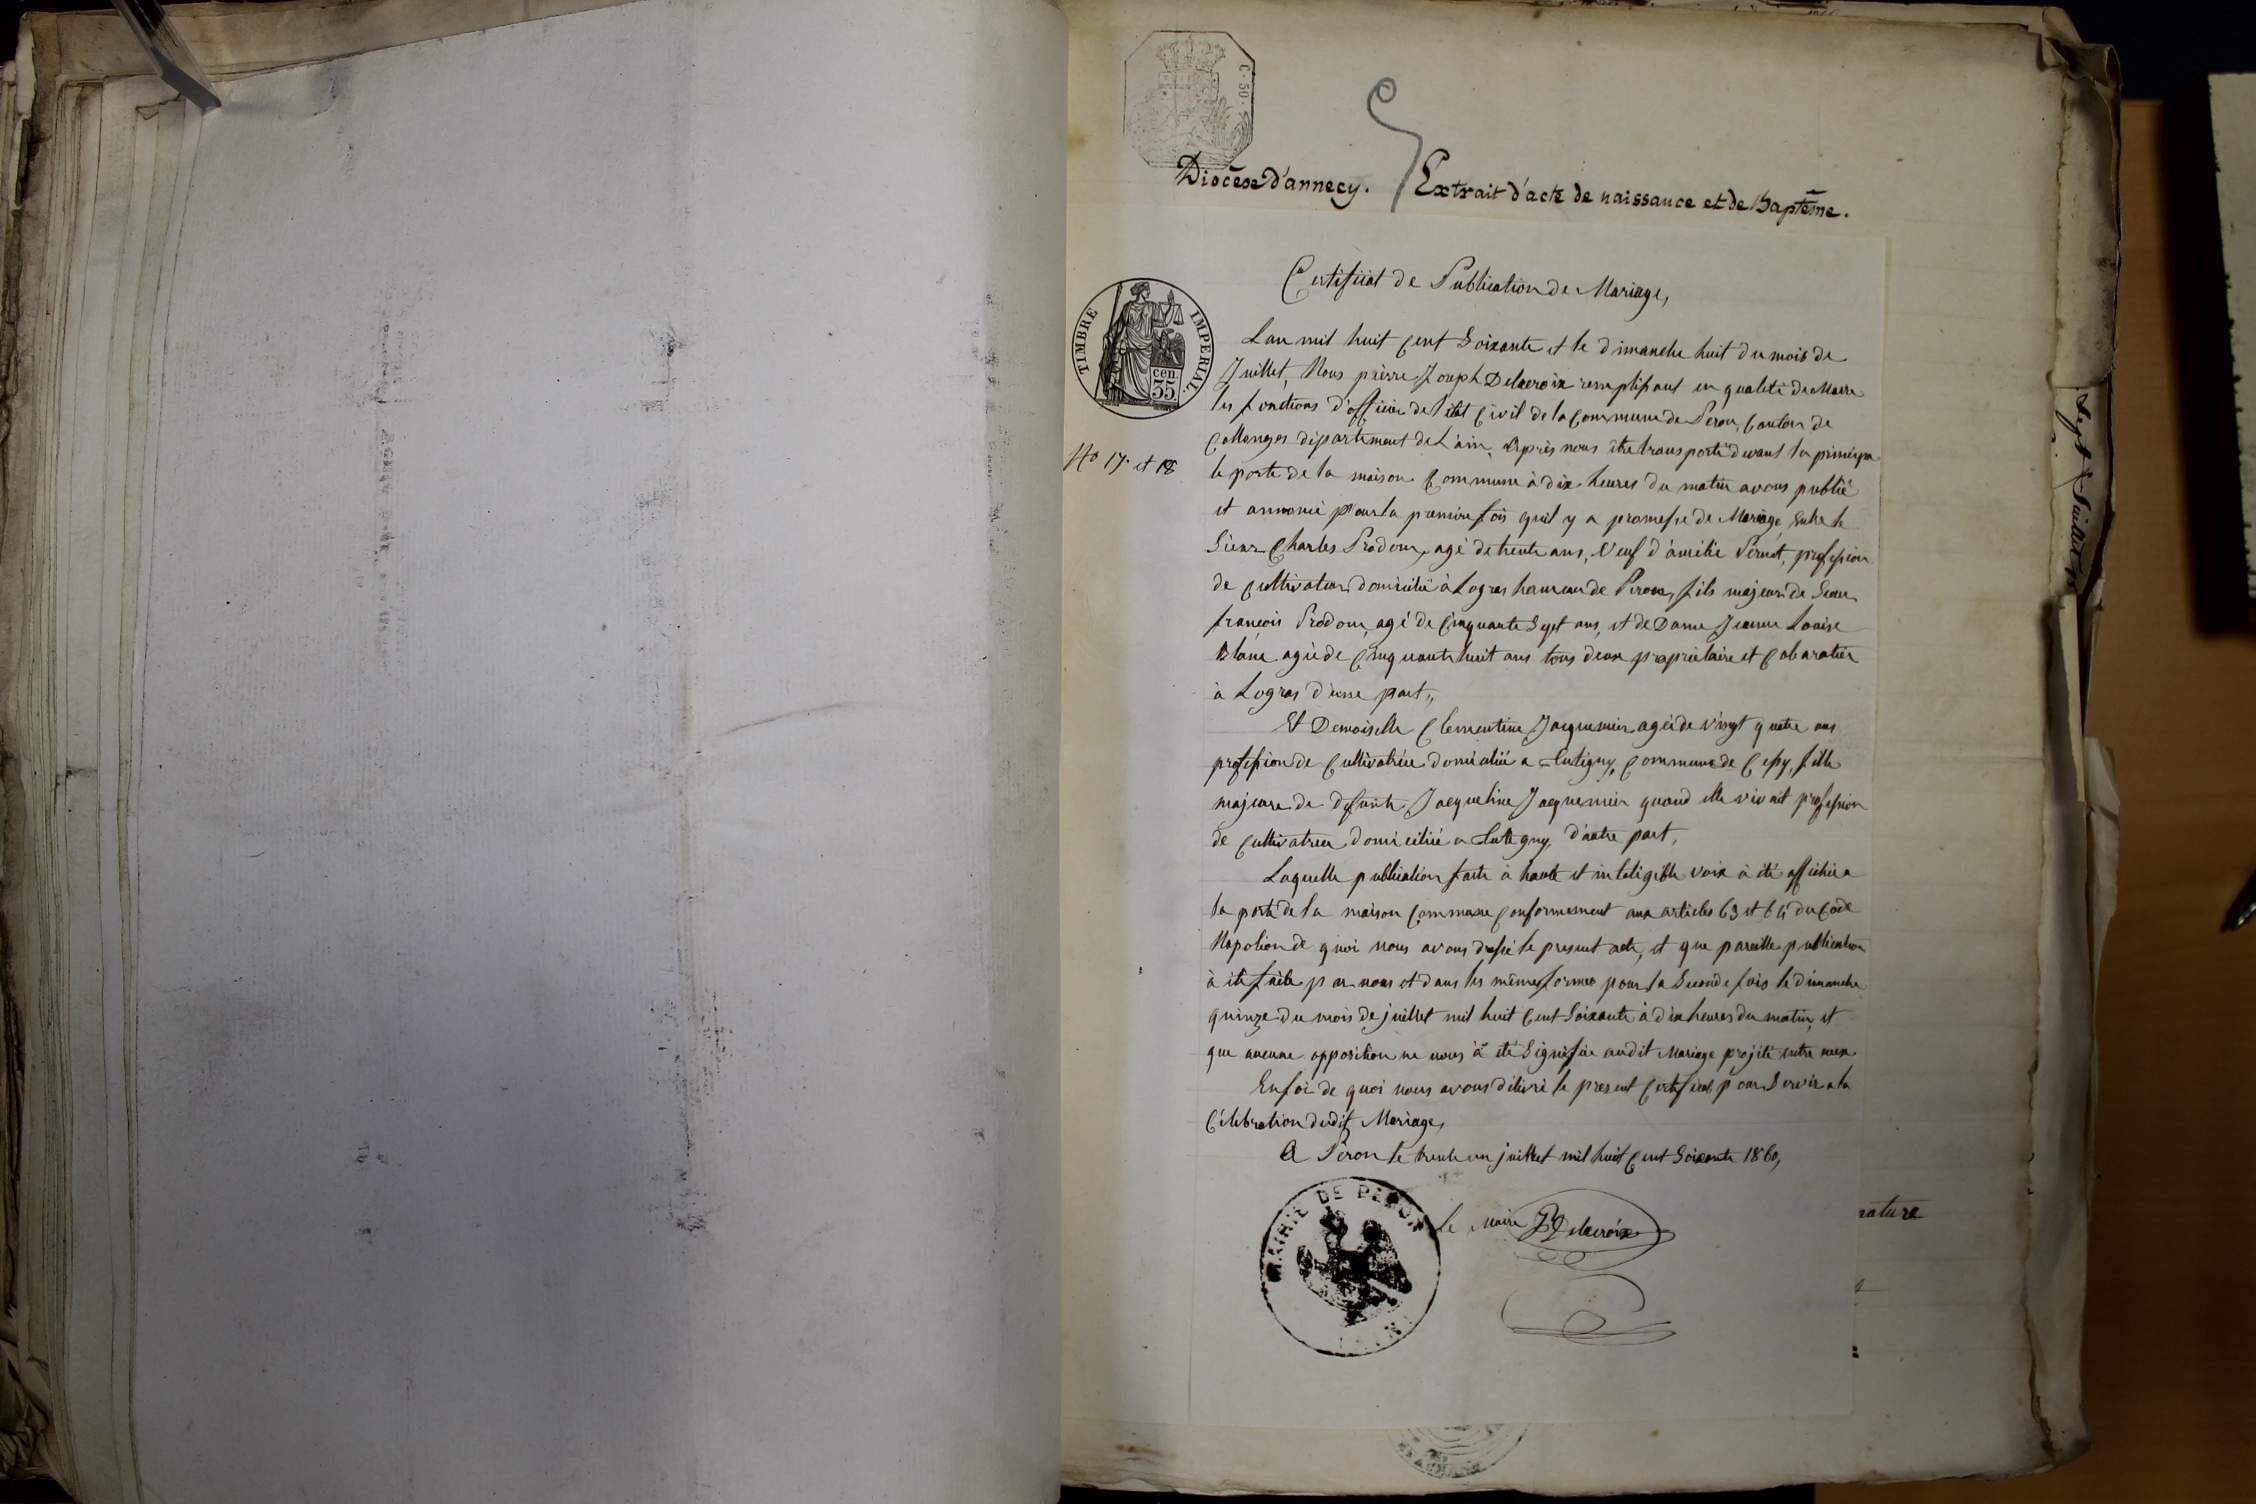 C. 50.
Diocèse d'annecy. Extrait d'acte de naissance et de Baptême.
Certifiiat de Publication de Mariage,
TIMBRE IMPERIAL.
cen. 35
No 17. et 18
Lan mil huit Cent Soixante et le dimanche huit du mois de
Juillet, Nous pierre Joseph Delacroix remplissant en qualité de Maire
les fonctions d'officier de l'état Civil de la Commune de Peron, Canton de
Collonges département de L'ain, Après nous être transporté devant la principa
le porte de la maison Commune à dix heures du matin avons publié
et annoncé pour la premiere fois quil y a promesse de Mariage, Entre le
Sieur Charles Prodon, agé de trente ans, Veuf d'amélie Pernet, profession
de Cultivateur domicilié à Logras hameau de Peron, fils majeur de Sieur
françois Prodon, agé de Cinquante Sept ans, et de Dame Jeanne Louise
Blanc agée de Cinquante huit ans tous deux propriétaire et Cabaratier
à Logras d'une part,,
Et Demoiselle Clementine Jacquemier agée de vingt quatre ans
profession de Cultivatrice domiciliée a Tutigny, Commune de Cessy, fille
majeure de defunte Jacqueline Jacquemier quand elle vivait profession
de Cultivatrice domiciliée a Tutegny, d'autre part,
Laquelle publication faite à haute et inteligible voix à été affichée a
la porte de la maison Commune Conformement aux articles 63 et 64 du Code
Napoléon de quoi nous avons dressé le present acte, et que pareille publication
à été faite par nous et dans les mêmes formes pour la Seconde fois le dimanche
quinze du mois de juillet mil huit Cent Soixante à dix heures du matin, et
que aucune opposition ne nous à été Signifiée audit Mariage projété entre eux.
Enfoi de quoi nous avons délivré le present Certificat pour Servir a la
Célébration dudit Mariage,
A Péron le trente un juillet mil huit Cent Soixante 1860,
MAIRIE DE PERON
(AIN)
le Maire Delacroix
nature